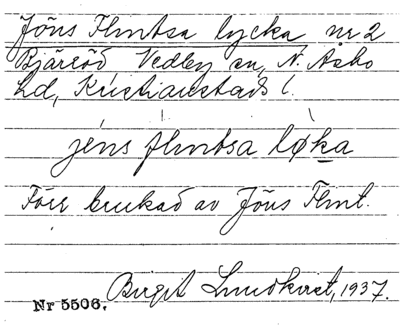 Jöns Flintsa lycka nr 2
Bjäröd Vedby sn, N. Åsbo
hd, Kristianstads l.
jéns flintsa løka
Förr brukad av Jöns Flint.
Birgit Lundkvist, 1937.
Nr 5506.